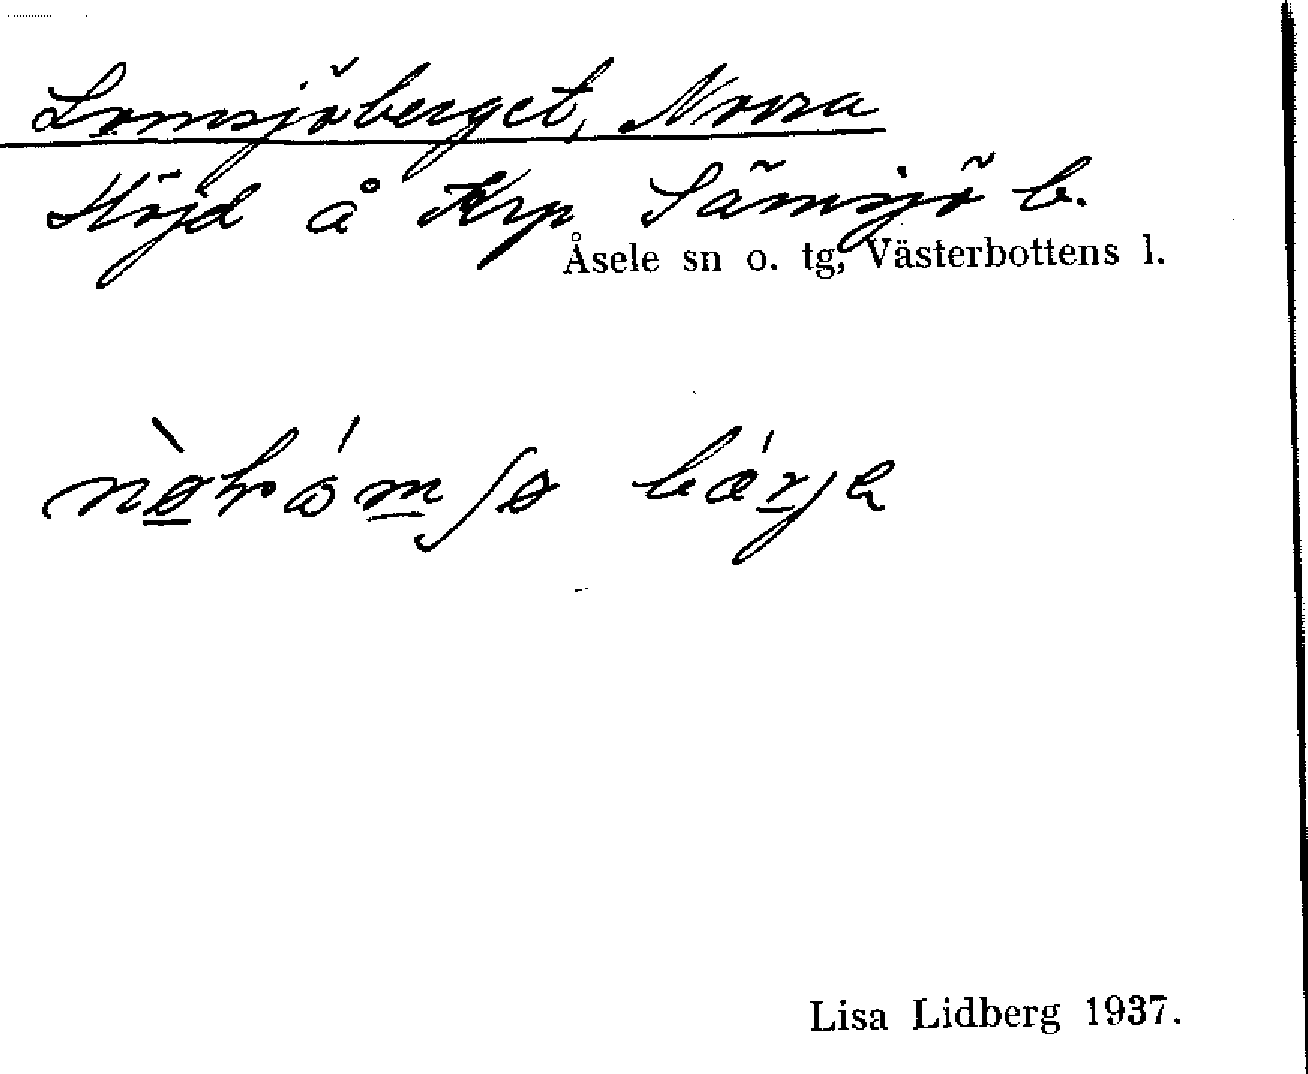 Lomsjöberget, Norra
Höjd å Krp Sämsjö b.
Åsele sn o. tg, Västerbottens l.
bærje
Lisa Lidberg 1937.